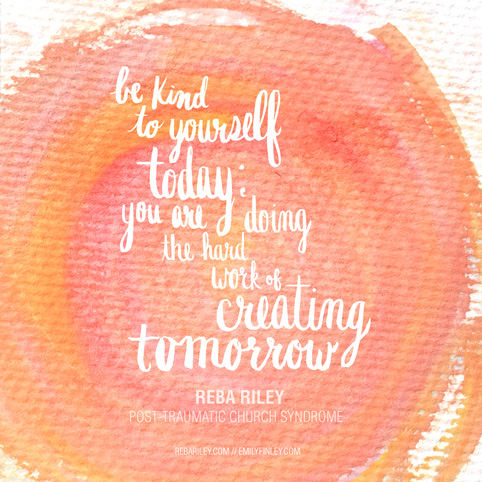 be kind
to yourself
today:
you are doing
the hard
work of
creating
tomorrow
REBA RILEY
POST-TRAUMATIC CHURCH SYNDROME
REBARILEY.COM // EMILYFINLEY.COM